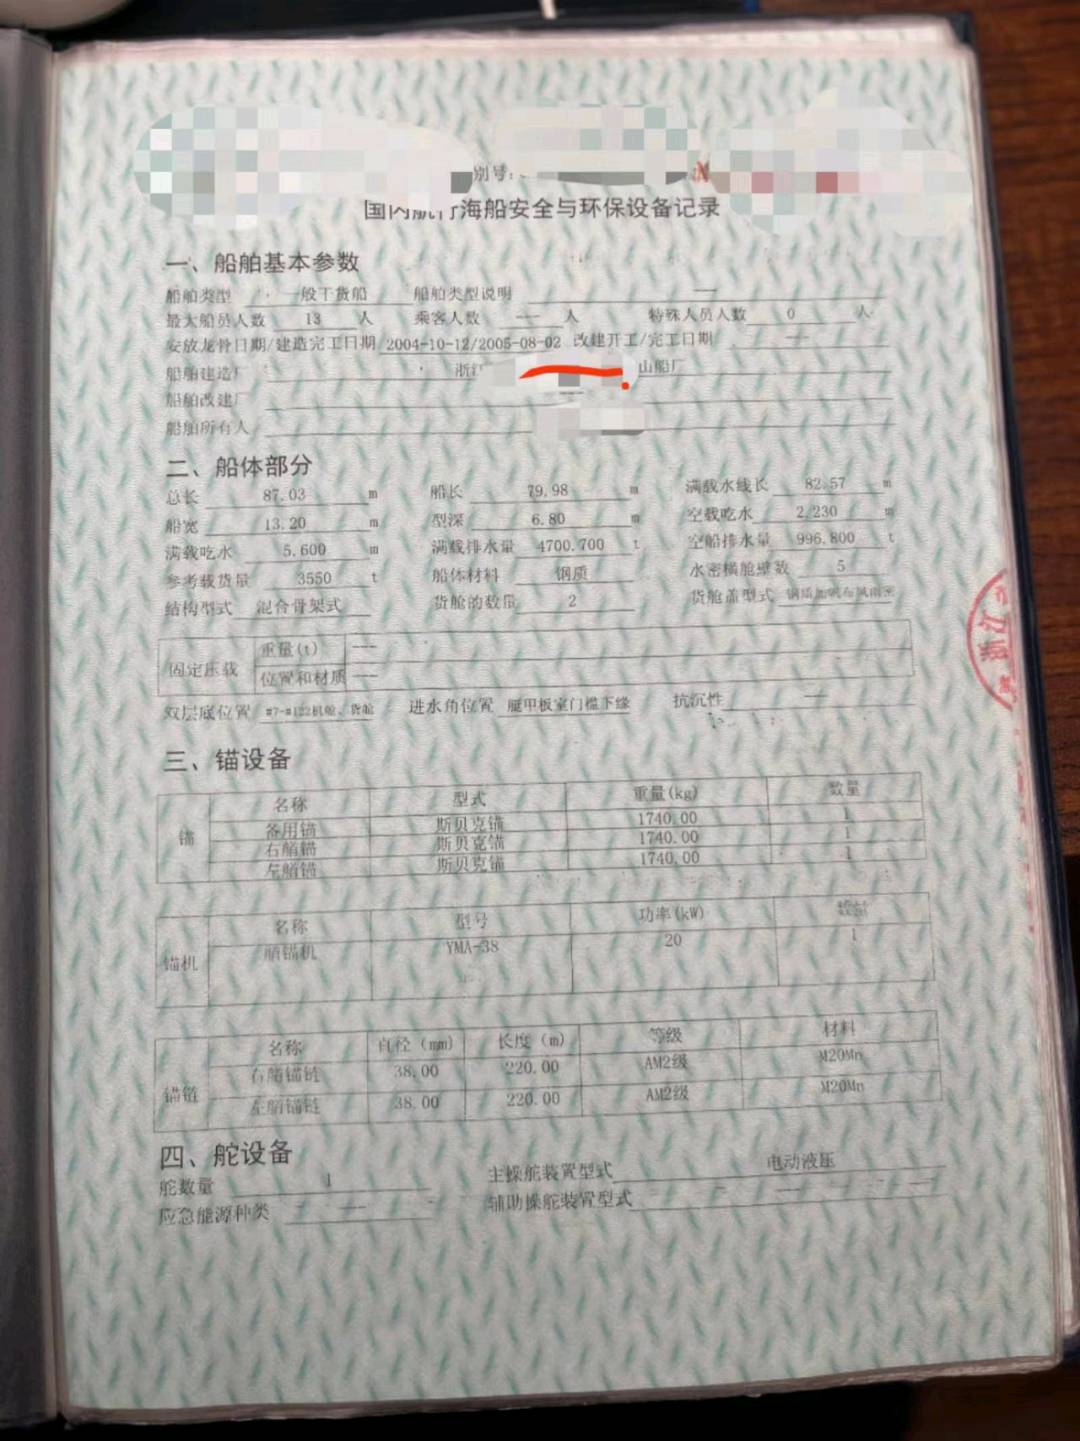 别号:
国内航行海船安全与环保设备记录
一、船舶基本参数
船舶类型 一般干货船 船舶类型说明 ——
最大船员人数 13 人 乘客人数 --- 人 特殊人员人数 0 人
安放龙骨日期/建造完工日期 2004-10-12/2005-08-02 改建开工/完工日期 ——
船舶建造厂 浙江 山船厂
船舶改建厂
船舶所有人
二、船体部分
总长 87.03 m 船长 79.98 m 满载水线长 82.57 m
船宽 13.20 m 型深 6.80 m 空载吃水 2.230 m
满载吃水 5.600 m 满载排水量 4700.700 t 空船排水量 996.800 t
参考载货量 3550 t 船体材料 钢质 水密横舱壁数 5
结构型式 混合骨架式 货舱的数量 2 货舱盖型式 钢质加帆布风雨密
固定压载 重量(t) ---
位置和材质 ---
双层底位置 #7-#122机舱、货舱 进水角位置 艇甲板室门槛下缘 抗沉性 ——
三、锚设备
锚 名称 型式 重量(kg) 数量
备用锚 斯贝克锚 1740.00 1
右艏锚 斯贝克锚 1740.00 1
左艏锚 斯贝克锚 1740.00 1
锚机 名称 型号 功率(kW) 数量
艏锚机 YMA-38 20 1
锚链 名称 直径（mm） 长度（m） 等级 材料
右艏锚链 38.00 220.00 AM2级 M20Mn
左艏锚链 38.00 220.00 AM2级 M20Mn
四、舵设备
舵数量 1 主操舵装置型式 电动液压
应急能源种类 —— 辅助操舵装置型式 ——
浙江